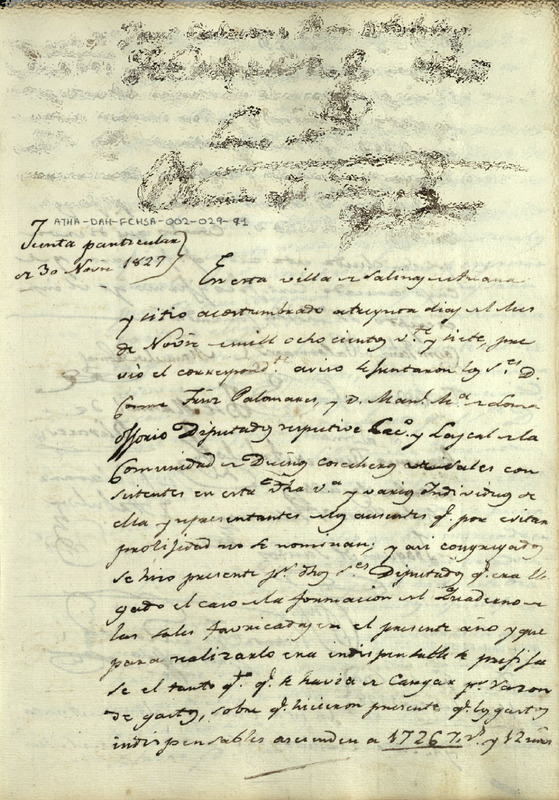 ATHA-DAH-FCHSA-002-029-91
Junta particular
de 30 Novre 1827
En esta villa de Salinas de Anana
y sitio acostumbrado a treynta dias del mes
de Novre de mill ochocientos vte y siete, pre
vio el correspondte aviso se juntaron los Sres D.
Cosme Frnz Palomares, y D. Manl Ma de
Ossorio Diputados respective Ecco y Laycal de la
Comunidad de Dueños cosecheros de sales con
sistentes en esta dha va y varios Individuos de
ella y representantes de los ausentes q. por evitar
prolijidad no se nominan; y asi congregados
se hizo presente pr dhos Sres Diputados q. era lle
gado el caso de la formacion del Quaderno de
las sales favricadas en el presente año y que
para realizarlo era indispensable se prefija
se el tanto q. se havia de Cargar pr razon
de gastos, sobre q. hicieron presente q. los gastos
indispensables ascienden a 17267 rs y 12 mrs